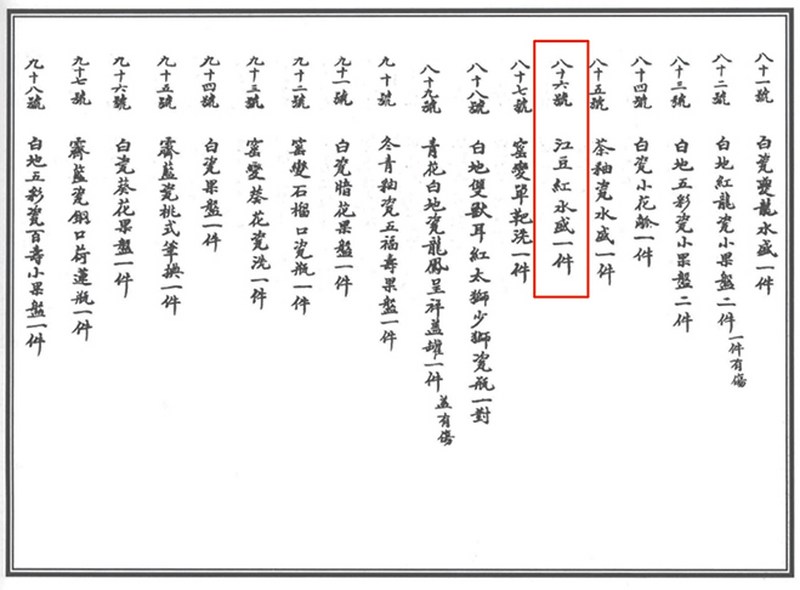 八十一號 白瓷夔龍水盛一件
八十二號 白地紅龍瓷小果盤二件 一件有傷
八十三號 白地五彩瓷小果盤二件
八十四號 白瓷小花觚一件
八十五號 茶釉瓷水盛一件
八十六號 江豆紅水盛一件
八十七號 窰變單靶洗一件
八十八號 白地雙獸耳紅太獅少獅瓷瓶一對
八十九號 青花白地瓷龍鳳呈祥蓋罐一件 蓋有傷
九十號 冬青釉瓷五福壽果盤一件
九十一號 白瓷暗花果盤一件
九十二號 窰變石榴口瓷瓶一件
九十三號 窰變葵花瓷洗一件
九十四號 白瓷果盤一件
九十五號 霽藍瓷桃式筆掭一件
九十六號 白瓷葵花果盤一件
九十七號 霽藍瓷銅口荷蓮瓶一件
九十八號 白地五彩瓷百壽小果盤一件